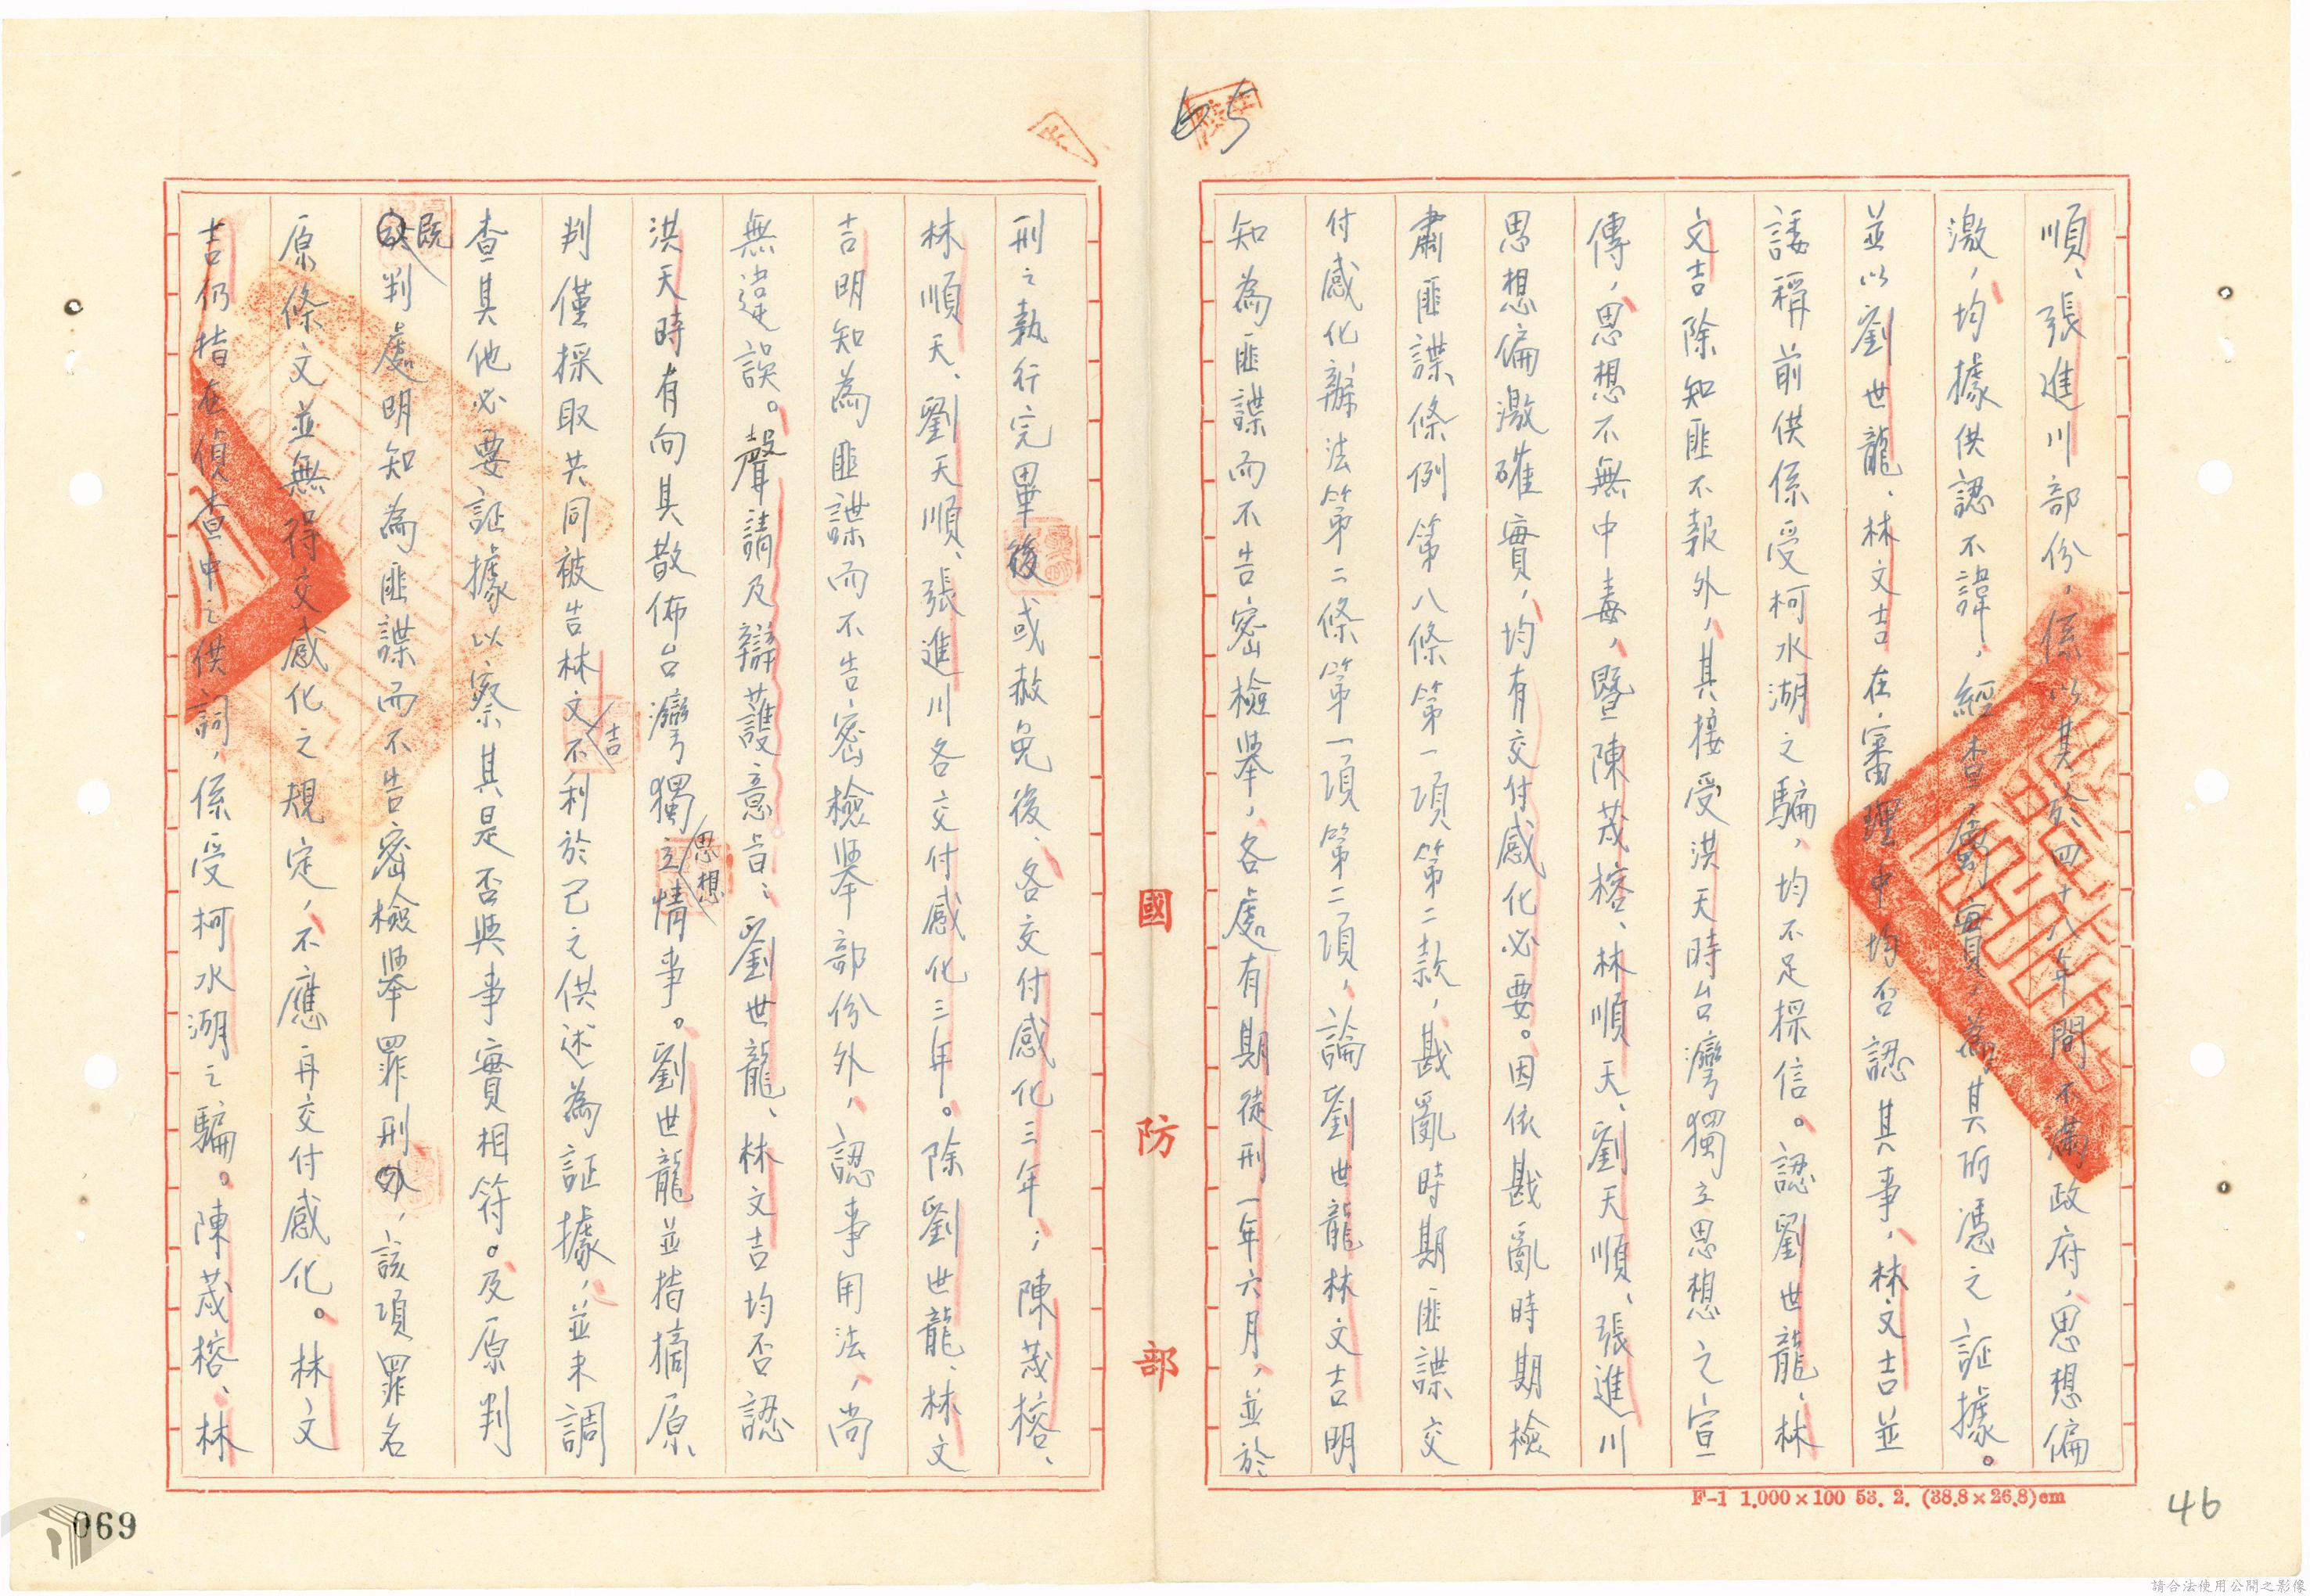 順、張進川部份，係以其於四十八年間不滿政府，思想偏
激，均據供認不諱，經查屬實，為其所憑之証據。
並以劉世龍、林文吉在審理中均否認其事，林文吉並
諉稱前供係受柯水湖之騙，均不足採信。認劉世龍、林
文吉除知匪不報外，其接受洪天時台灣獨立思想之宣
傳，思想不無中毒，暨陳茂榕、林順天、劉天順、張進川
思想偏激確實，均有交付感化必要。因依戡亂時期檢
肅匪諜條例第八條第一項第二款，戡亂時期匪諜交
付感化辦法第二條第一項第二項，論劉世龍林文吉明
知為匪諜而不告密檢舉，各處有期徒刑一年六月，並於
國防部
刑之執行完畢後或赦免後、各交付感化三年；陳茂榕、
林順天、劉天順、張進川各交付感化三年。除劉世龍、林文
吉明知為匪諜而不告密檢舉部份外，認事用法，尚
無違誤。聲請及辯護意旨：劉世龍、林文吉均否認
洪天時有向其散佈台灣獨立思想情事。劉世龍並指摘原
判僅採取共同被告林文吉不利於己之供述為証據，並未調
查其他必要証據以察其是否與事實相符。及原判
既判處明知為匪諜而不告密檢舉罪刑，該項罪名
原條文並無得交感化之規定，不應再交付感化。林文
吉仍指在偵查中之供詞，係受柯水湖之騙。陳茂榕、林
F-1 1,000×100 53. 2. (38.8×26.8)cm
46
069
請合法使用公開之影像